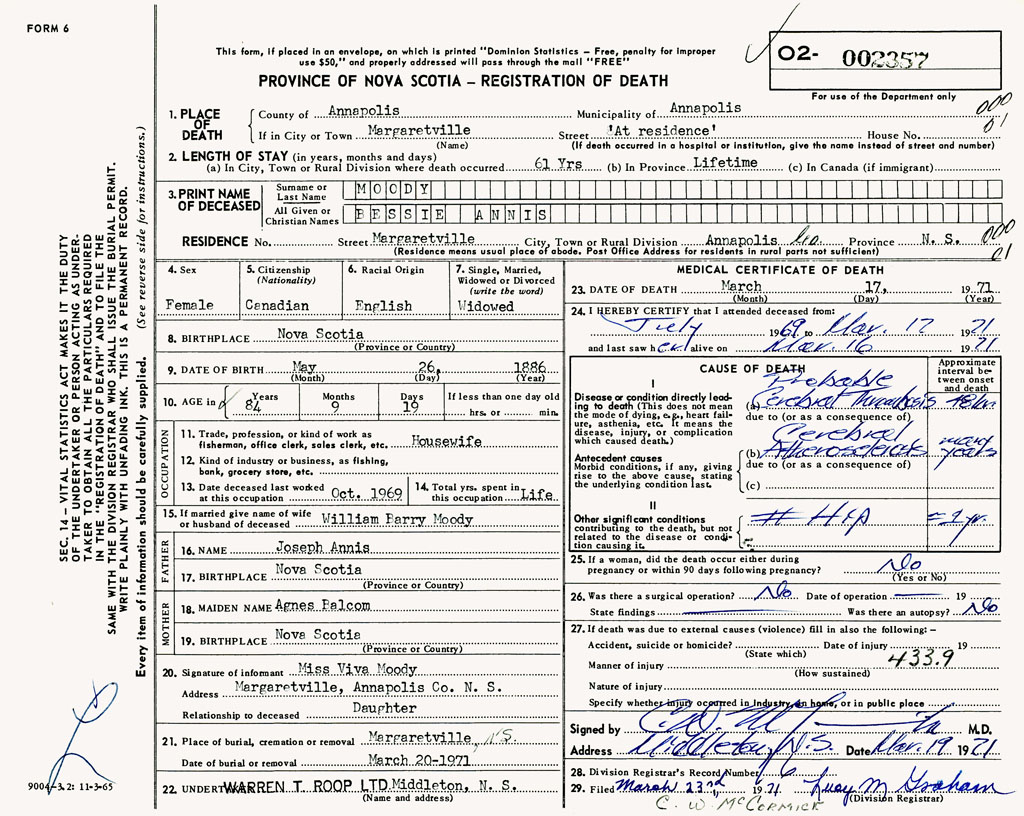 FORM 6
This form, if placed in an envelope, on which is printed "Dominion Statistics – Free, penalty for improper
use $50," and properly addressed will pass through the mail "FREE"
PROVINCE OF NOVA SCOTIA – REGISTRATION OF DEATH
02- 002357
For use of the Department only
SEC. 14 – VITAL STATISTICS ACT MAKES IT THE DUTY
OF THE UNDERTAKER OR PERSON ACTING AS UNDER-
TAKER TO OBTAIN ALL THE PARTICULARS REQUIRED
IN THE "REGISTRATION OF DEATH" AND TO FILE THE
SAME WITH THE DIVISION REGISTRAR WHO SHALL ISSUE THE BURIAL PERMIT.
WRITE PLAINLY WITH UNFADING INK. THIS IS A PERMANENT RECORD.
Every item of information should be carefully supplied. (See reverse side for instructions.)
1. PLACE OF DEATH County of Annapolis Municipality of Annapolis 000
If in City or Town Margaretville Street 'At residence' House No. 01
(Name) (If death occurred in a hospital or institution, give the name instead of street and number)
2. LENGTH OF STAY (in years, months and days)
(a) In City, Town or Rural Division where death occurred 61 Yrs (b) In Province Lifetime (c) In Canada (if immigrant)
3. PRINT NAME OF DECEASED Surname or Last Name MOODY
All Given or Christian Names BESSIE ANNIS
RESIDENCE No. Street Margaretville City, Town or Rural Division Annapolis Co. Province N. S. 000
(Residence means usual place of abode. Post Office Address for residents in rural parts not sufficient) 01
4. Sex
Female
5. Citizenship
(Nationality)
Canadian
6. Racial Origin
English
7. Single, Married,
Widowed or Divorced
(write the word)
Widowed
8. BIRTHPLACE Nova Scotia
(Province or Country)
9. DATE OF BIRTH May 26, 1886
(Month) (Day) (Year)
10. AGE in Years 84 Months 9 Days 19 If less than one day old
hrs. or min.
OCCUPATION
11. Trade, profession, or kind of work as
fishermen, office clerk, sales clerk, etc. Housewife
12. Kind of industry or business, as fishing,
bank, grocery store, etc.
13. Date deceased last worked
at this occupation Oct. 1969
14. Total yrs. spent in
this occupation Life
15. If married give name of wife
or husband of deceased William Parry Moody
FATHER
16. NAME Joseph Annis
17. BIRTHPLACE Nova Scotia
(Province or Country)
MOTHER
18. MAIDEN NAME Agnes Balcom
19. BIRTHPLACE Nova Scotia
(Province or Country)
20. Signature of informant Miss Viva Moody
Address Margaretville, Annapolis Co. N. S.
Relationship to deceased Daughter
21. Place of burial, cremation or removal Margaretville, N.S.
Date of burial or removal March 20-1971
22. UNDERT WARREN T. ROOP LTD Middleton, N. S.
(Name and address)
9004-3.2: 11-3-65
MEDICAL CERTIFICATE OF DEATH
23. DATE OF DEATH March 17, 1971
(Month) (Day) (Year)
24. I HEREBY CERTIFY that I attended deceased from:
July 1969 to Mar. 17 1971
and last saw her alive on Mar. 16 1971
CAUSE OF DEATH
Approximate
interval be-
tween onset
and death
I
Disease or condition directly lead-
ing to death (This does not mean
the mode of dying, e.g., heart fail-
ure, asthenia, etc. It means the
disease, injury, or complication
which caused death.)
Probable
(a) Cerebral Thrombosis 48 hr
due to (or as a consequence of)
Antecedent causes
Morbid conditions, if any, giving
rise to the above cause, stating
the underlying condition last.
Cerebral
(b) Atherosclerosis many years
due to (or as a consequence of)
(c)
II
Other significant conditions
contributing to the death, but not
related to the disease or condi-
tion causing it.
# Hip = 1 yr.
25. If a woman, did the death occur either during
pregnancy or within 90 days following pregnancy? No
(Yes or No)
26. Was there a surgical operation? No Date of operation 19
State findings Was there an autopsy? No
27. If death was due to external causes (violence) fill in also the following: –
Accident, suicide or homicide? Date of injury 19
(State which) 433.9
Manner of injury
(How sustained)
Nature of injury
Specify whether injury occurred in Industry, in home, or in public place
Signed by M.D.
Address Middleton, N.S. Date Mar. 19 1971
28. Division Registrar's Record Number 6
29. Filed March 23rd, 1971 Lucy M Graham
(Division Registrar)
C. W. McCORMICK